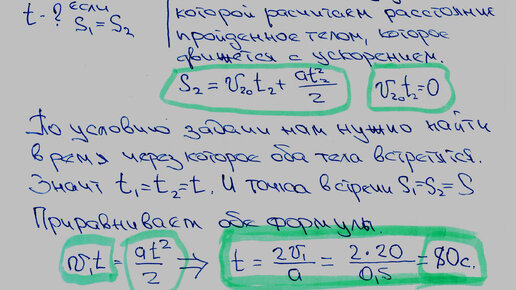 t - ? если
S₁ = S₂
которой расчитаем расстояние
пройденное телом, которое
движется с ускорением.
S₂ = v₂₀t₂ + at₂²/2    v₂₀t₂ = 0
По условию задачи нам нужно найти
время через которое оба тела встретятся.
Значит t₁ = t₂ = t. И точка встречи S₁ = S₂ = S
Приравниваем обе формулы.
v₁t = at²/2 → t = 2v₁/a = 2·20/0,5 = 80с.